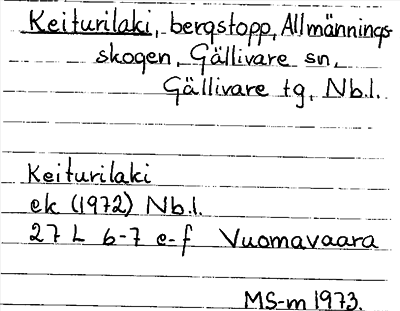 Keiturilaki, bergstopp, Allmännings-
skogen, Gällivare sn,
Gällivare tg, Nb.l.
Keiturilaki
ek (1972) Nb.l.
27 L 6-7 e-f Vuomavaara
MS-m 1973.